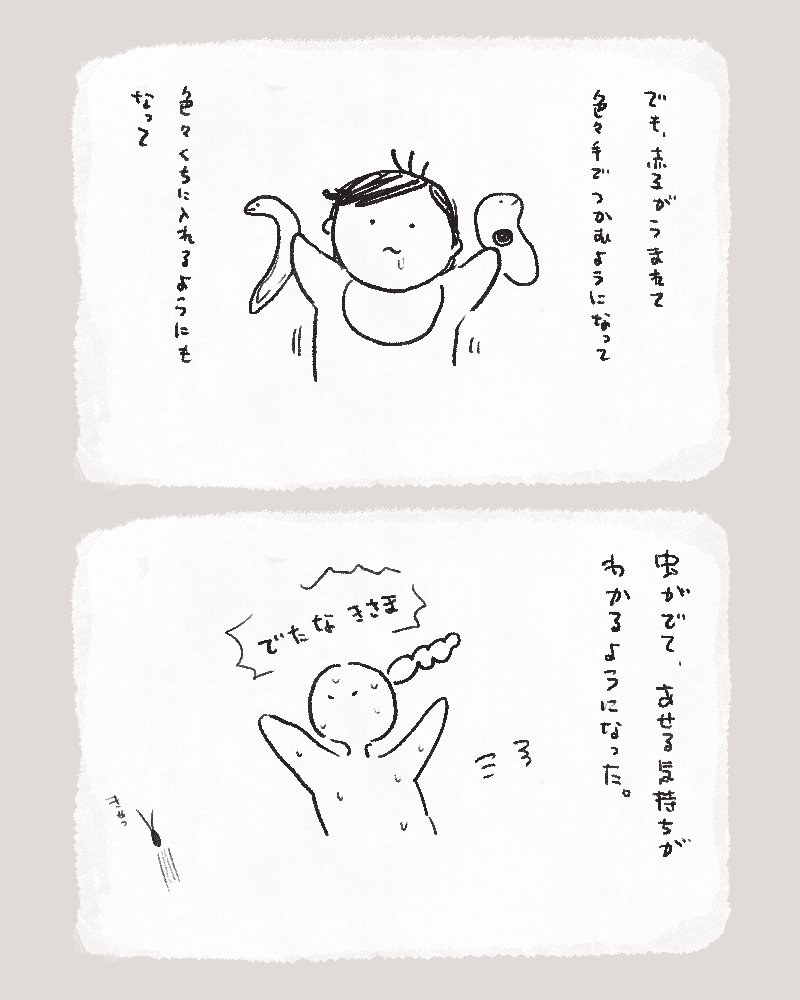 でも、赤子がうまれて
色々手でつかむようになって
色々くちに入れるようにも
なって
虫がでて、あせる気持ちが
わかるようになった。
でたな きさま
きゃっ